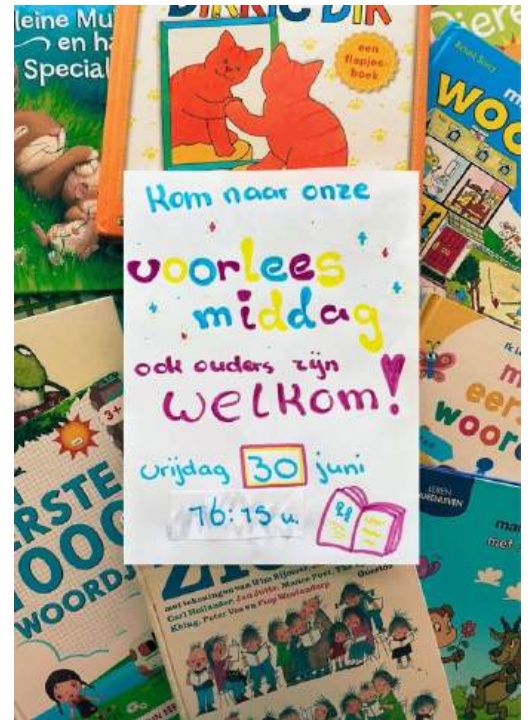 leine Mu
en ha
Special
DIKKIE DIK
een
flapjes-
boek
iere
Kom naar onze
voorlees
middag
ook ouders zijn
WELKOM!
vrijdag 30 juni
16:15 u.
Ik l
m
eers
woord
3+
ERSTE
1000
WOORDJ
LEREN
SAMENLEVEN
met
met tekeningen van Wim Bijmoer,
Carl Hollander, Jan Jutte, Mance Post,
Khing, Peter Vos en Fiep Westendorp
Querido